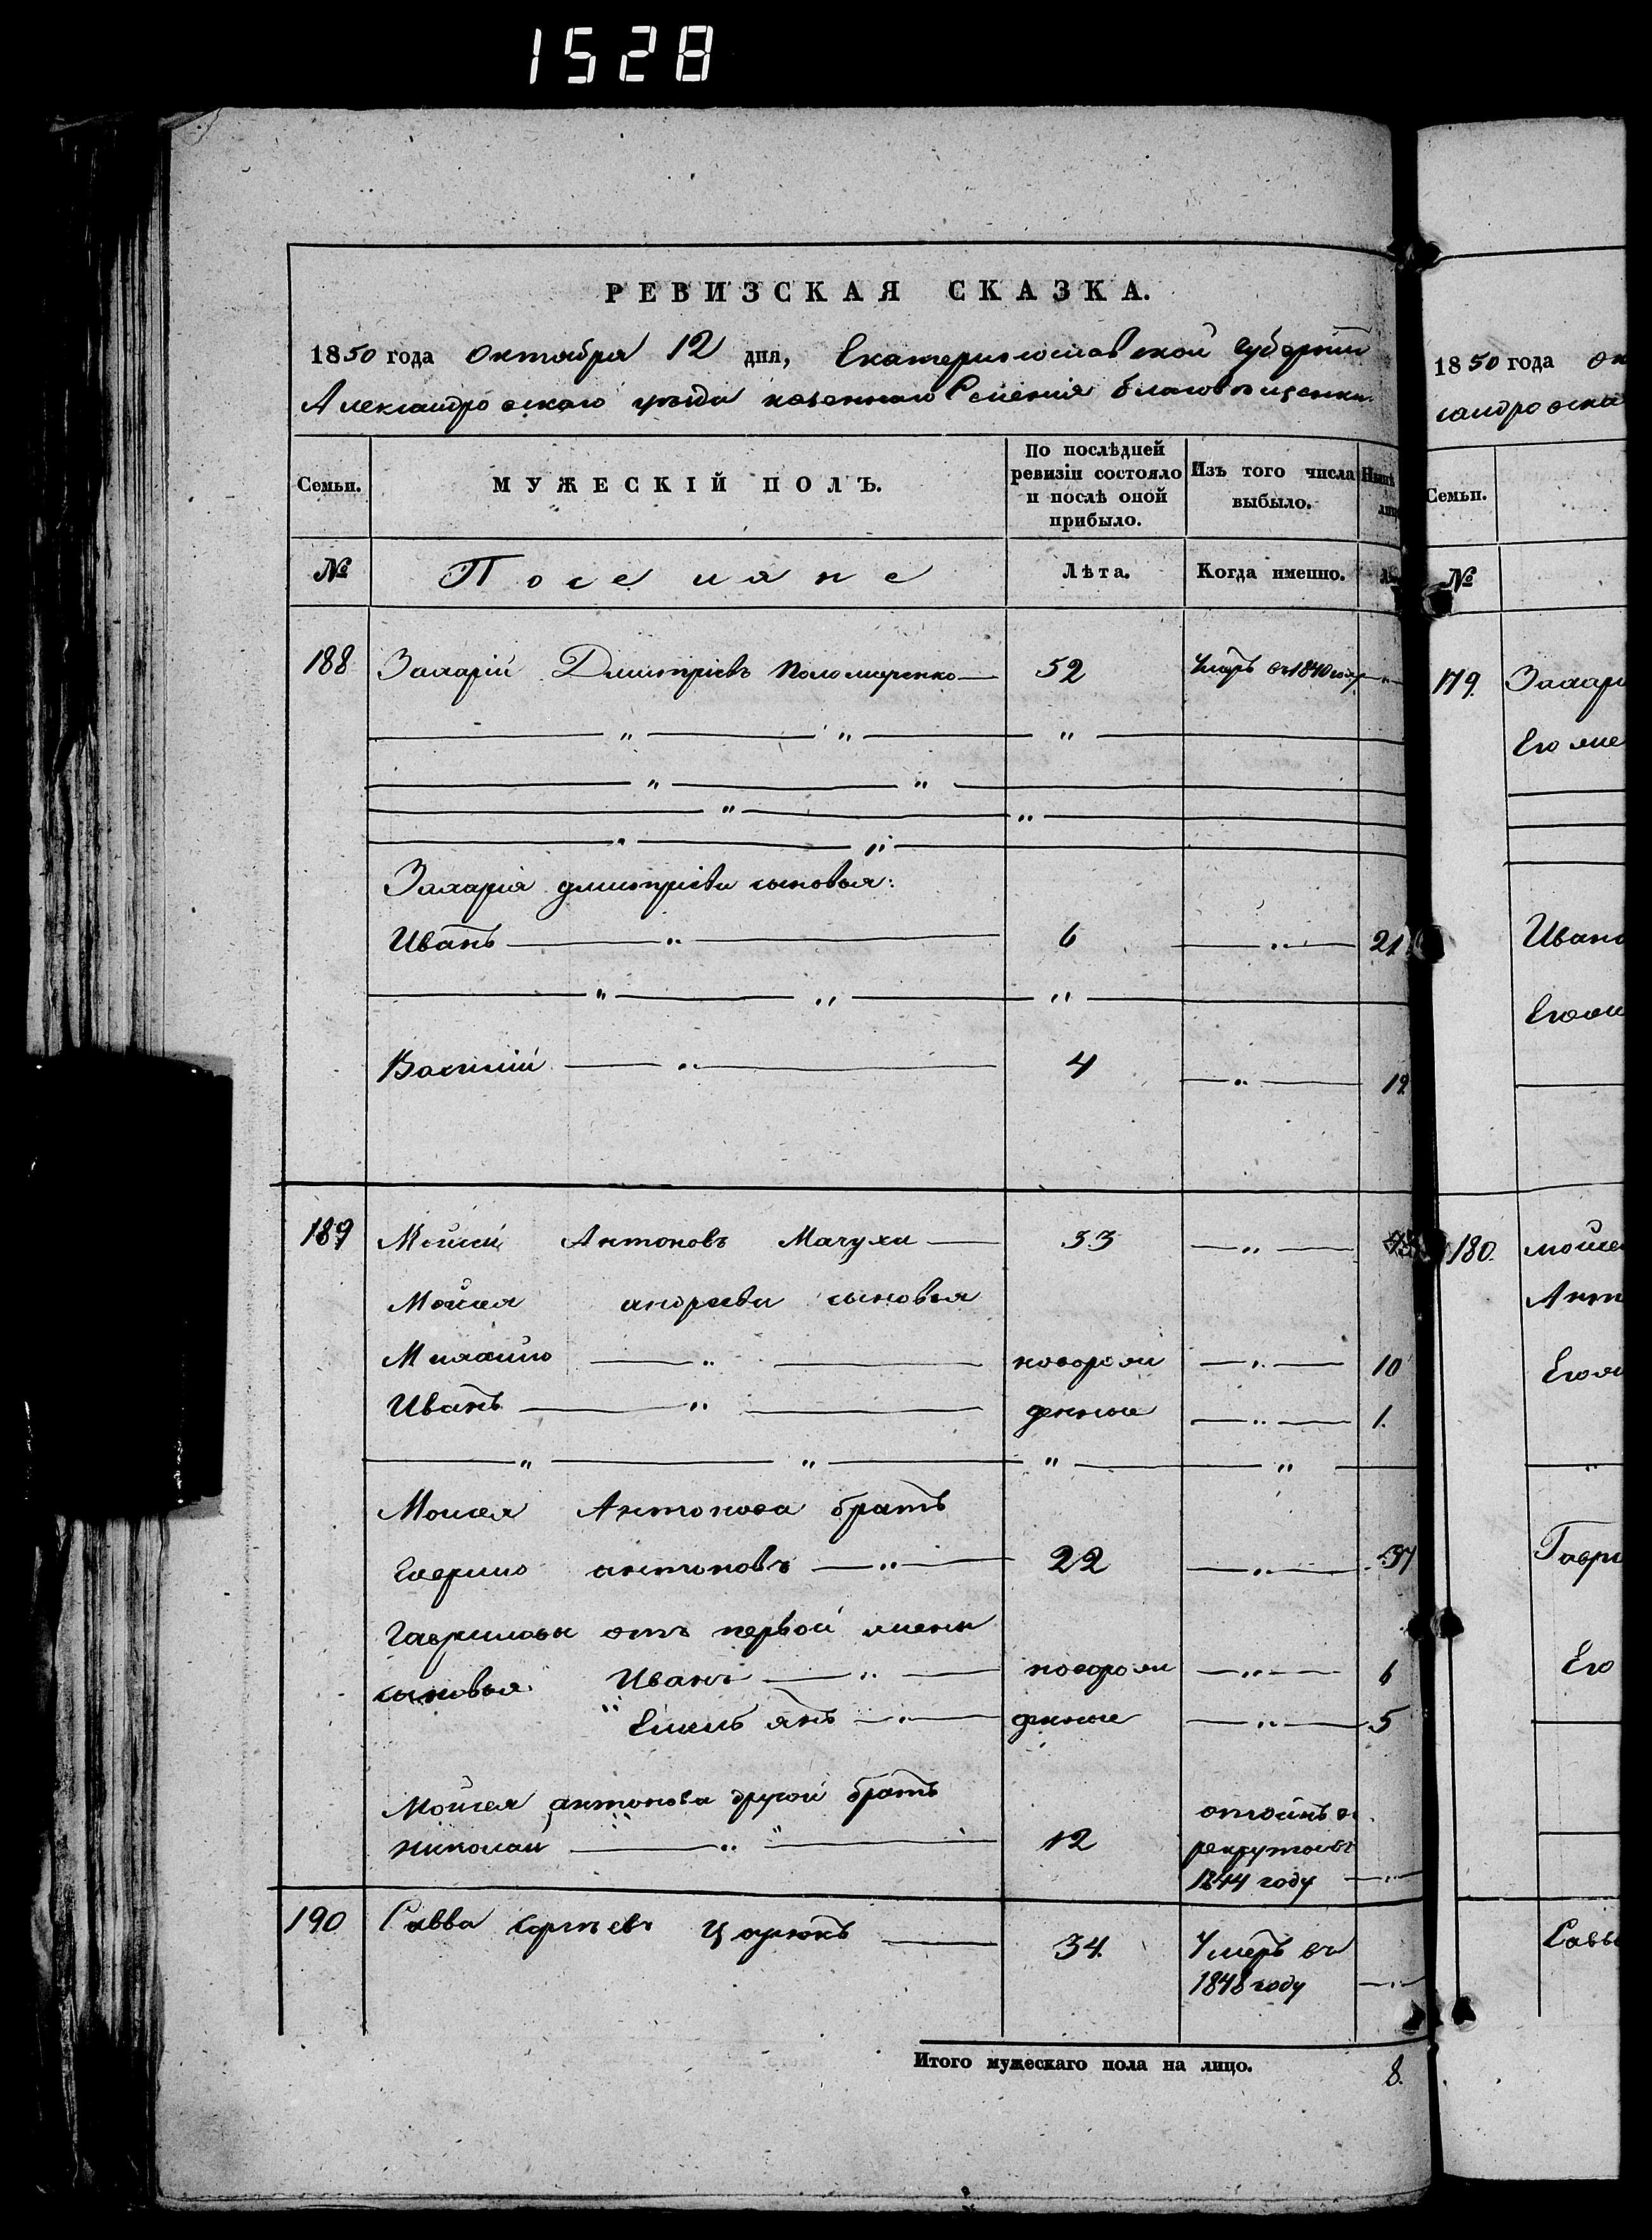 1528
РЕВИЗСКАЯ СКАЗКА.
1850 года Октября 12 дня, Екатеринославской губерніи
Александровскаго уѣзда казеннаго Селенія Благовѣщенки
Семьи.
МУЖЕСКІЙ ПОЛЪ.
По послѣдней ревизіи состояло и послѣ оной прибыло.
Изъ того числа выбыло.
№
Поселяне
Лѣта.
Когда именно.
188 Захарій Дмитріевъ Поломаренко 52 Умеръ въ 1840 году
Захарія Дмитріева сыновья:
Иванъ 6 21
Василій 4 19
189 Моисей Антоновъ Мачуха 33
Моисея андреева сыновья
Михайло новорож 10
Иванъ денные 1.
Моисея Антонова братъ
Гаврило антоновъ 22 37
Гавриловы отъ первой жены
сыновья Иванъ новорож 6
Емельянъ денные 5
Моисея антонова другой братъ
Николай 12 рекруты въ
1844 году
190 Савва Сергѣевъ 34. Умеръ въ
1848 году
Итого мужескаго пола на лицо. 8.
1850 года ок
сандровска
Семьи.
№
179. Захарі
Его же
Ивана
180. моисе
Анто
Гаври
Его
Савв